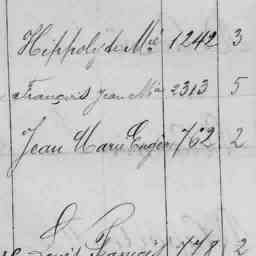 Hippolyte Mie 1242 3
François Jean Mie 2313 5
Jean Marie Eugène 762 2
Louis François 778 2